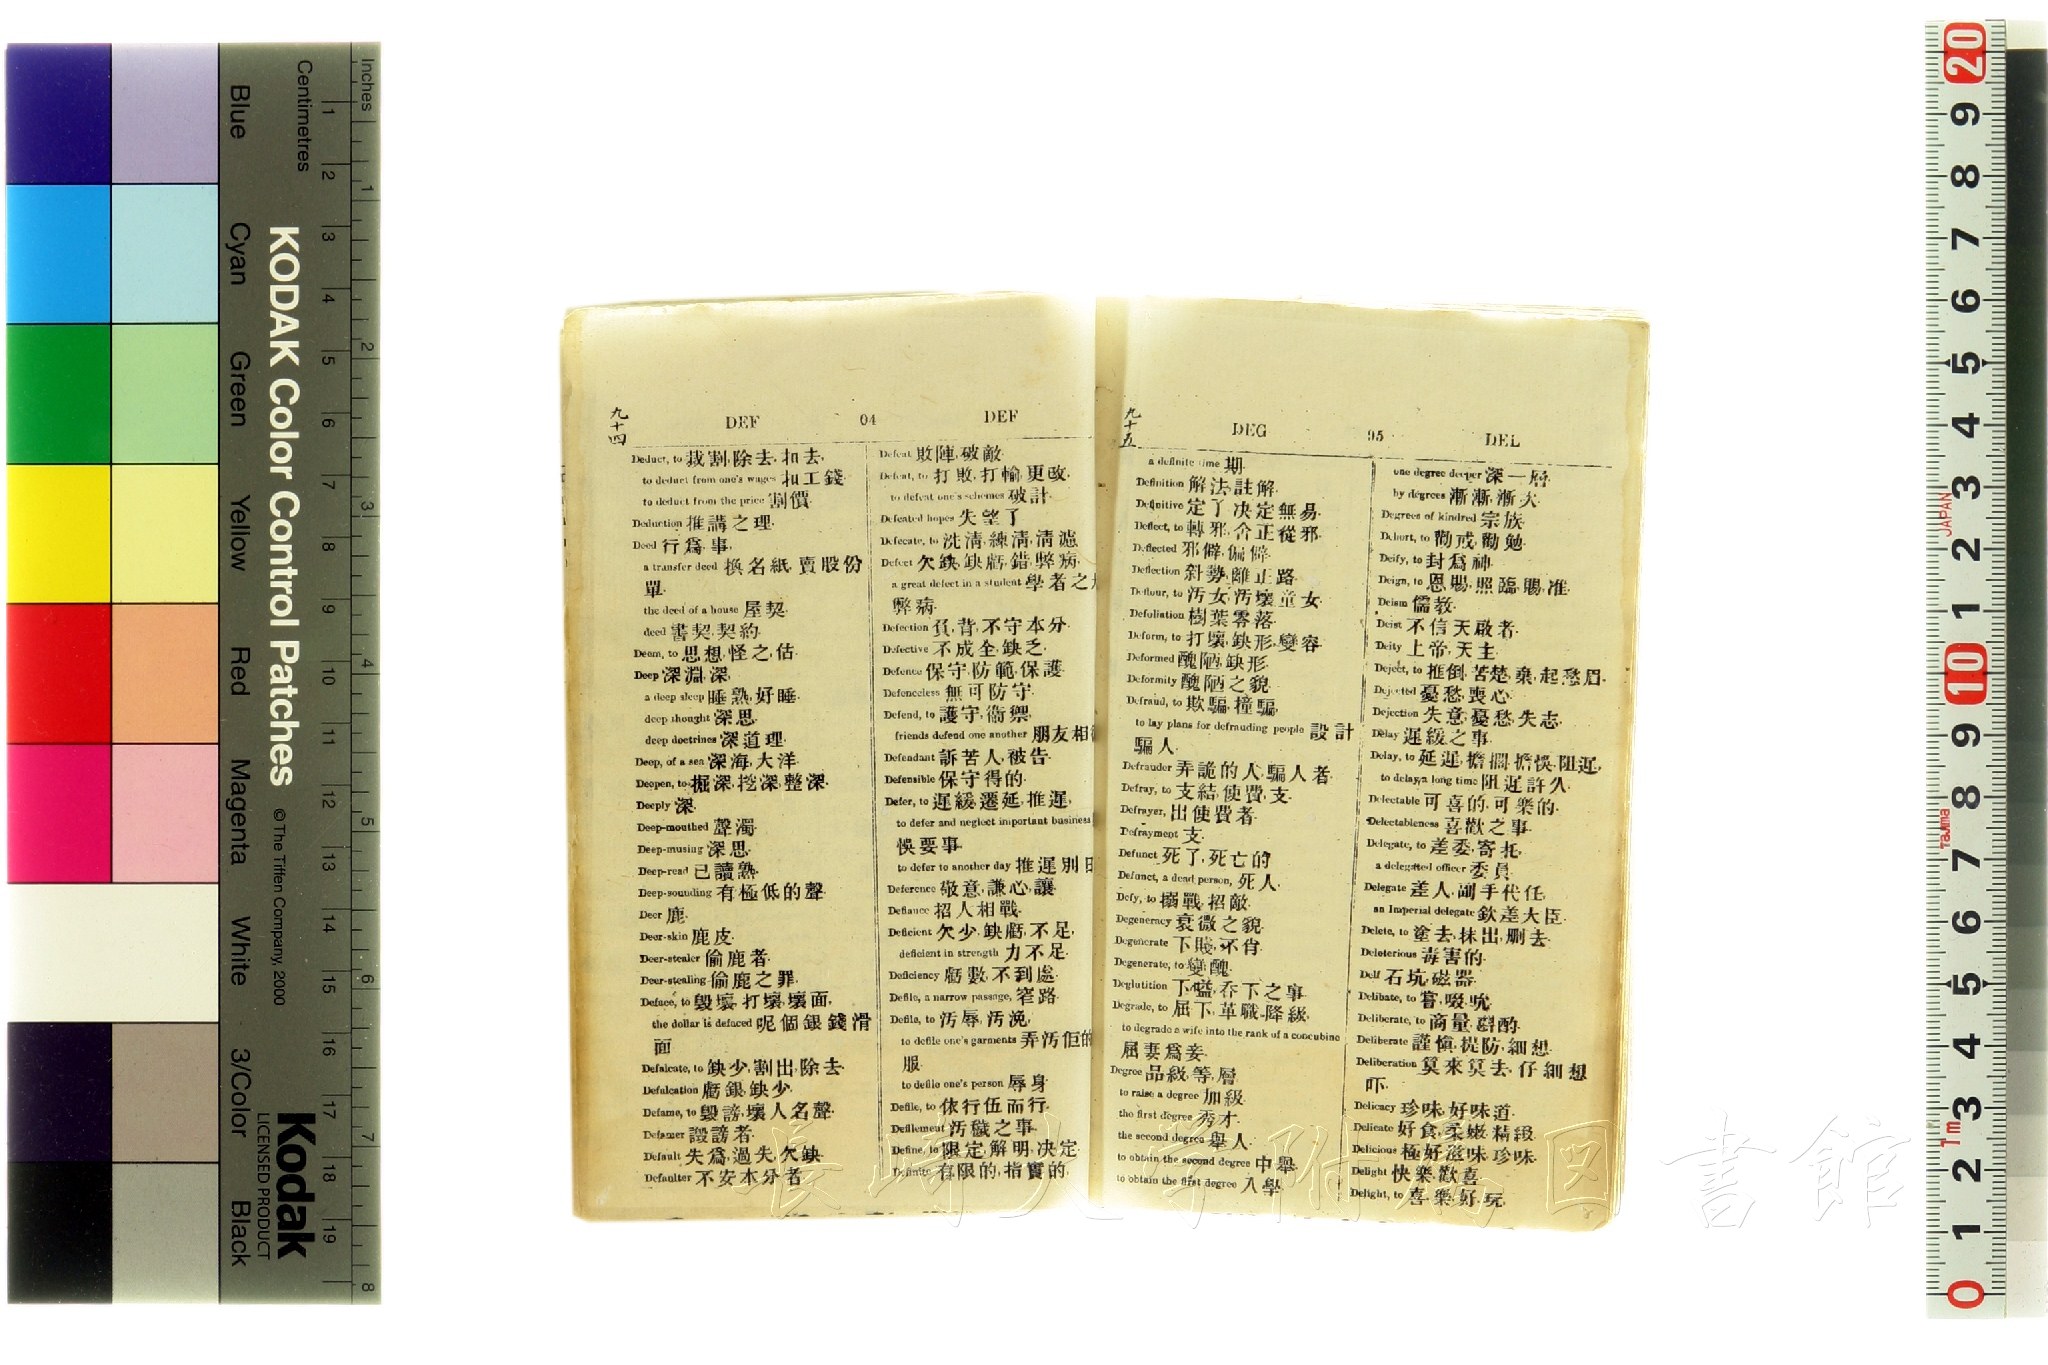 Inches
Centimetres
Blue
Cyan
Green
Yellow
Red
Magenta
White
3/Color
Black
KODAK Color Control Patches
© The Tiffen Company, 2000
Kodak
LICENSED PRODUCT
九十四
DEF 04 DEF
Deduct, to 裁割,除去,扣去,
to deduct from one's wages 扣工錢
to deduct from the price 割價
Deduction 推講之理.
Deed 行爲,事,
a transfer deed 換名紙,賣股份
單.
the deed of a house 屋契.
deed 書契,契約.
Deem, to 思想,怪之,估
Deep 深淵,深,
a deep sleep 睡熟,好睡.
deep thought 深思.
deep doctrines 深道理.
Deep, of a sea 深海,大洋.
Deepen, to 掘深,挖深,整深.
Deeply 深.
Deep-mouthed 聲濁.
Deep-musing 深思.
Deep-read 已讀熟.
Deep-sounding 有極低的聲
Deer 鹿.
Deer-skin 鹿皮.
Deer-stealer 偷鹿者.
Deer-stealing 偷鹿之罪.
Deface, to 毀壞,打壞,壞面,
the dollar is defaced 呢個銀錢滑
面
Defalcate, to 缺少,割出,除去.
Defalcation 虧銀,缺少.
Defame, to 毀謗,壞人名聲.
Defamer 毀謗者.
Default 失爲,過失,欠缺.
Defaulter 不安本分者.
Defeat 敗陣,破敵.
Defeat, to 打敗,打輸,更改,
to defeat one's schemes 破計.
Defeated hopes 失望了
Defecate, to 洗清,練清,清濾
Defect 欠缺,缺虧,錯,弊病.
a great defect in a student 學者之
弊病.
Defection 負,背,不守本分.
Defective 不成全,缺乏.
Defence 保守,防範,保護.
Defenceless 無可防守.
Defend, to 護守,衞禦,
friends defend one another 朋友相
Defendant 訴苦人,被告.
Defensible 保守得的.
Defer, to 遲緩,遷延,推遲,
to defer and neglect important business
悞要事.
to defer to another day 推遲別日
Deference 敬意,謙心,讓.
Defiance 招人相戰.
Deficient 欠少,缺虧,不足,
deficient in strength 力不足.
Deficiency 虧數,不到處.
Defile, a narrow passage, 窄路.
Defile, to 汚辱,汚浼,
to defile one's garments 弄汚佢的
服.
to defile one's person 辱身
Defile, to 依行伍而行.
Defilement 汚穢之事.
Define, to 限定,解明,决定.
Definite 有限的,指實的,
九十五
DEG 95 DEL
a definite time 期.
Definition 解法,註解.
Definitive 定了,决定無易.
Deflect, to 轉邪,舍正從邪.
Deflected 邪僻,偏僻.
Deflection 斜勢,離正路.
Deflour, to 汚女,汚壞童女.
Defoliation 樹葉零落.
Deform, to 打壞,缺形,變容.
Deformed 醜陋,缺形.
Deformity 醜陋之貌.
Defraud, to 欺騙,撞騙,
to lay plans for defrauding people 設計
騙人.
Defrauder 弄詭的人,騙人者.
Defray, to 支結,使費,支.
Defrayer, 出使費者.
Defrayment 支.
Defunct 死了,死亡的
Defunct, a dead person, 死人.
Defy, to 搦戰,招敵.
Degeneracy 衰微之貌.
Degenerate 下賤,不肖.
Degenerate, to 變醜.
Deglutition 下嗌,吞下之事.
Degrade, to 屈下,革職,降級,
to degrade a wife into the rank of a concubine
屈妻爲妾.
Degree 品級,等,層
to raise a degree 加級.
the first degree 秀才.
the second degree 舉人.
to obtain the second degree 中舉
to obtain the first degree 入學
one degree deeper 深一層
by degrees 漸漸,漸次
Degrees of kindred 宗族.
Dehort, to 勸戒,勸勉.
Deify, to 封爲神.
Deign, to 恩賜,照臨,賜,准.
Deism 儒教.
Deist 不信天啟者.
Deity 上帝,天主.
Deject, to 推倒,苦楚,棄,起愁眉.
Dejected 憂愁,喪心.
Dejection 失意,憂愁,失志.
Delay 遲緩之事.
Delay, to 延遲,擔擱,擔悞,阻遲,
to delay a long time 阻遲許久.
Delectable 可喜的,可樂的.
Delectableness 喜歡之事.
Delegate, to 差委,寄托,
a delegated officer 委員.
Delegate 差人,副手代任,
an Imperial delegate 欽差大臣.
Delete, to 塗去,抹出,删去.
Deleterious 毒害的.
Delf 石坑,磁器.
Delibate, to 嘗,啜,吮.
Deliberate, to 商量,斟酌.
Deliberate 謹愼,提防,細想.
Deliberation 算來算去,仔細想
吓.
Delicacy 珍味,好味道.
Delicate 好食,柔嫩,精緻.
Delicious 極好滋味,珍味.
Delight 快樂,歡喜.
Delight, to 喜,樂,好,玩.
長崎大学附属図書館
JAPAN
Tajima
1m